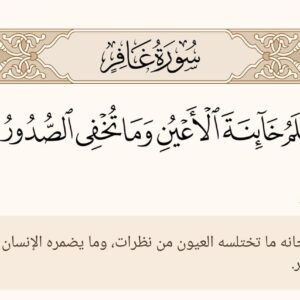 سُورَةُ غَافِرٍ
لَمُ خَآئِنَةَ ٱلۡأَعۡيُنِ وَمَا تُخۡفِي ٱلصُّدُورُ
حانه ما تختلسه العيون من نظرات، وما يضمره الإنسان
ر.